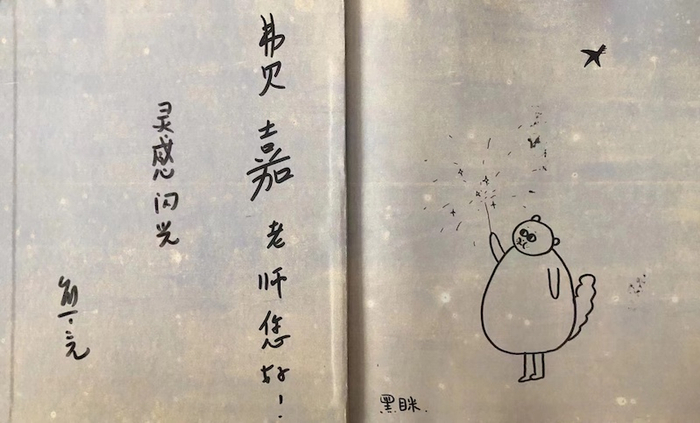 费嘉老师您好！
灵感闪光
黑眯.